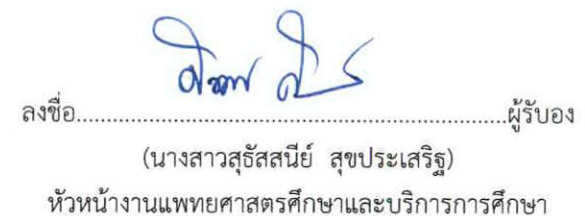 ลงชื่อ......................................................................ผู้รับอง
(นางสาวสุธัสสนีย์ สุขประเสริฐ)
หัวหน้างานแพทยศาสตรศึกษาและบริการการศึกษา